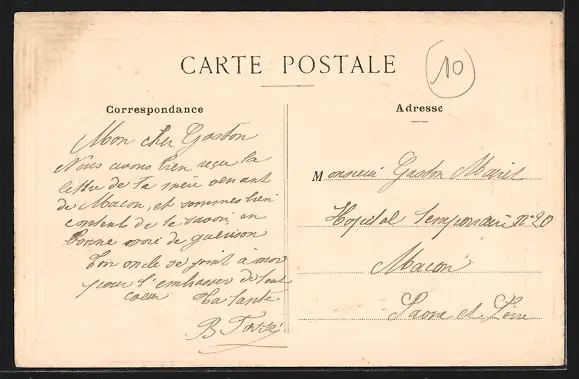 CARTE POSTALE
10
Correspondance
Adresse
Mon cher Gaston
Nous avons bien reçu la
lettre de ta mère venant
de Macon, et sommes bien
contents de te savoir en
bonne voie de guerison
Ton oncle se joint à moi
pour t'embrasser de tout
coeur Ta tante
B.
Monsieur Gaston
Hopital Temporaire n° 20
Macon
Saone et Loire